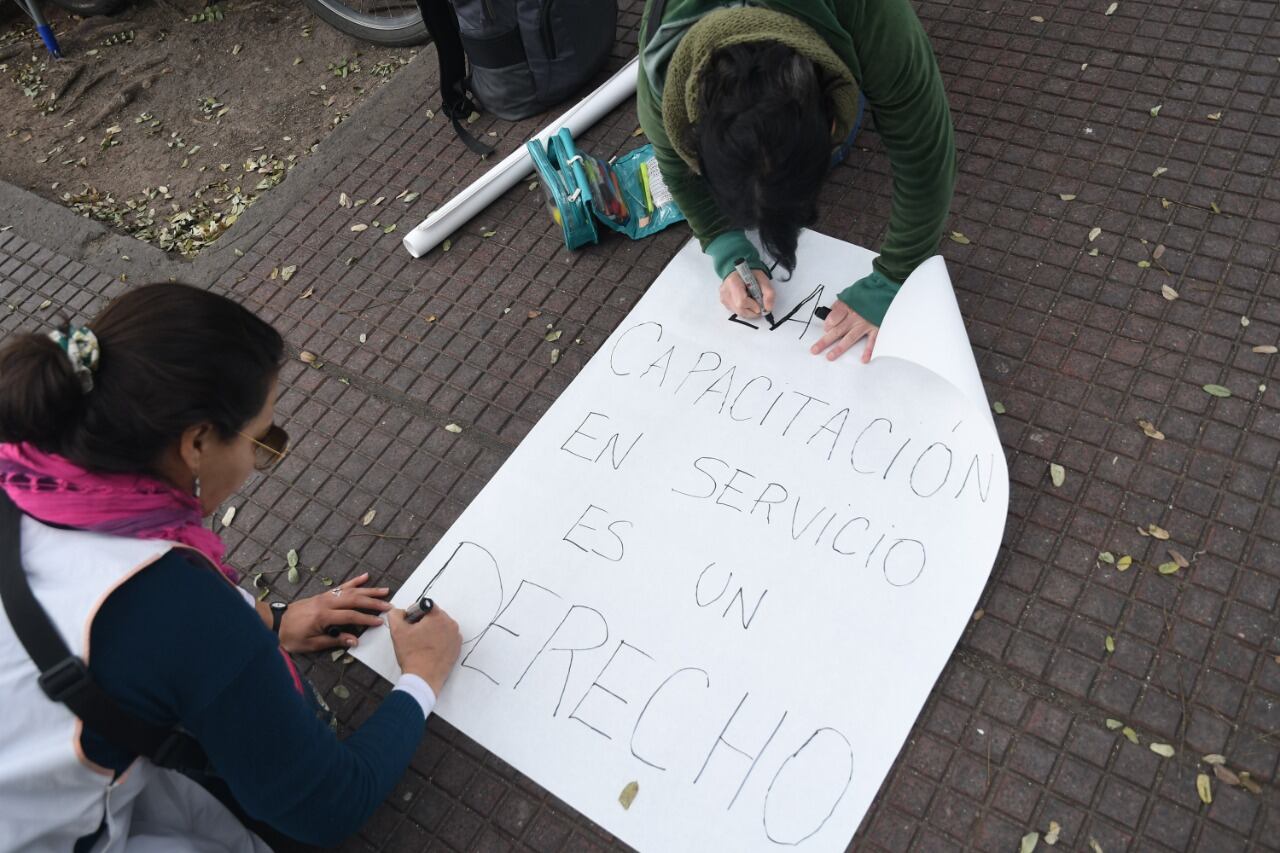 LA
CAPACITACIÓN
EN SERVICIO
ES UN
DERECHO